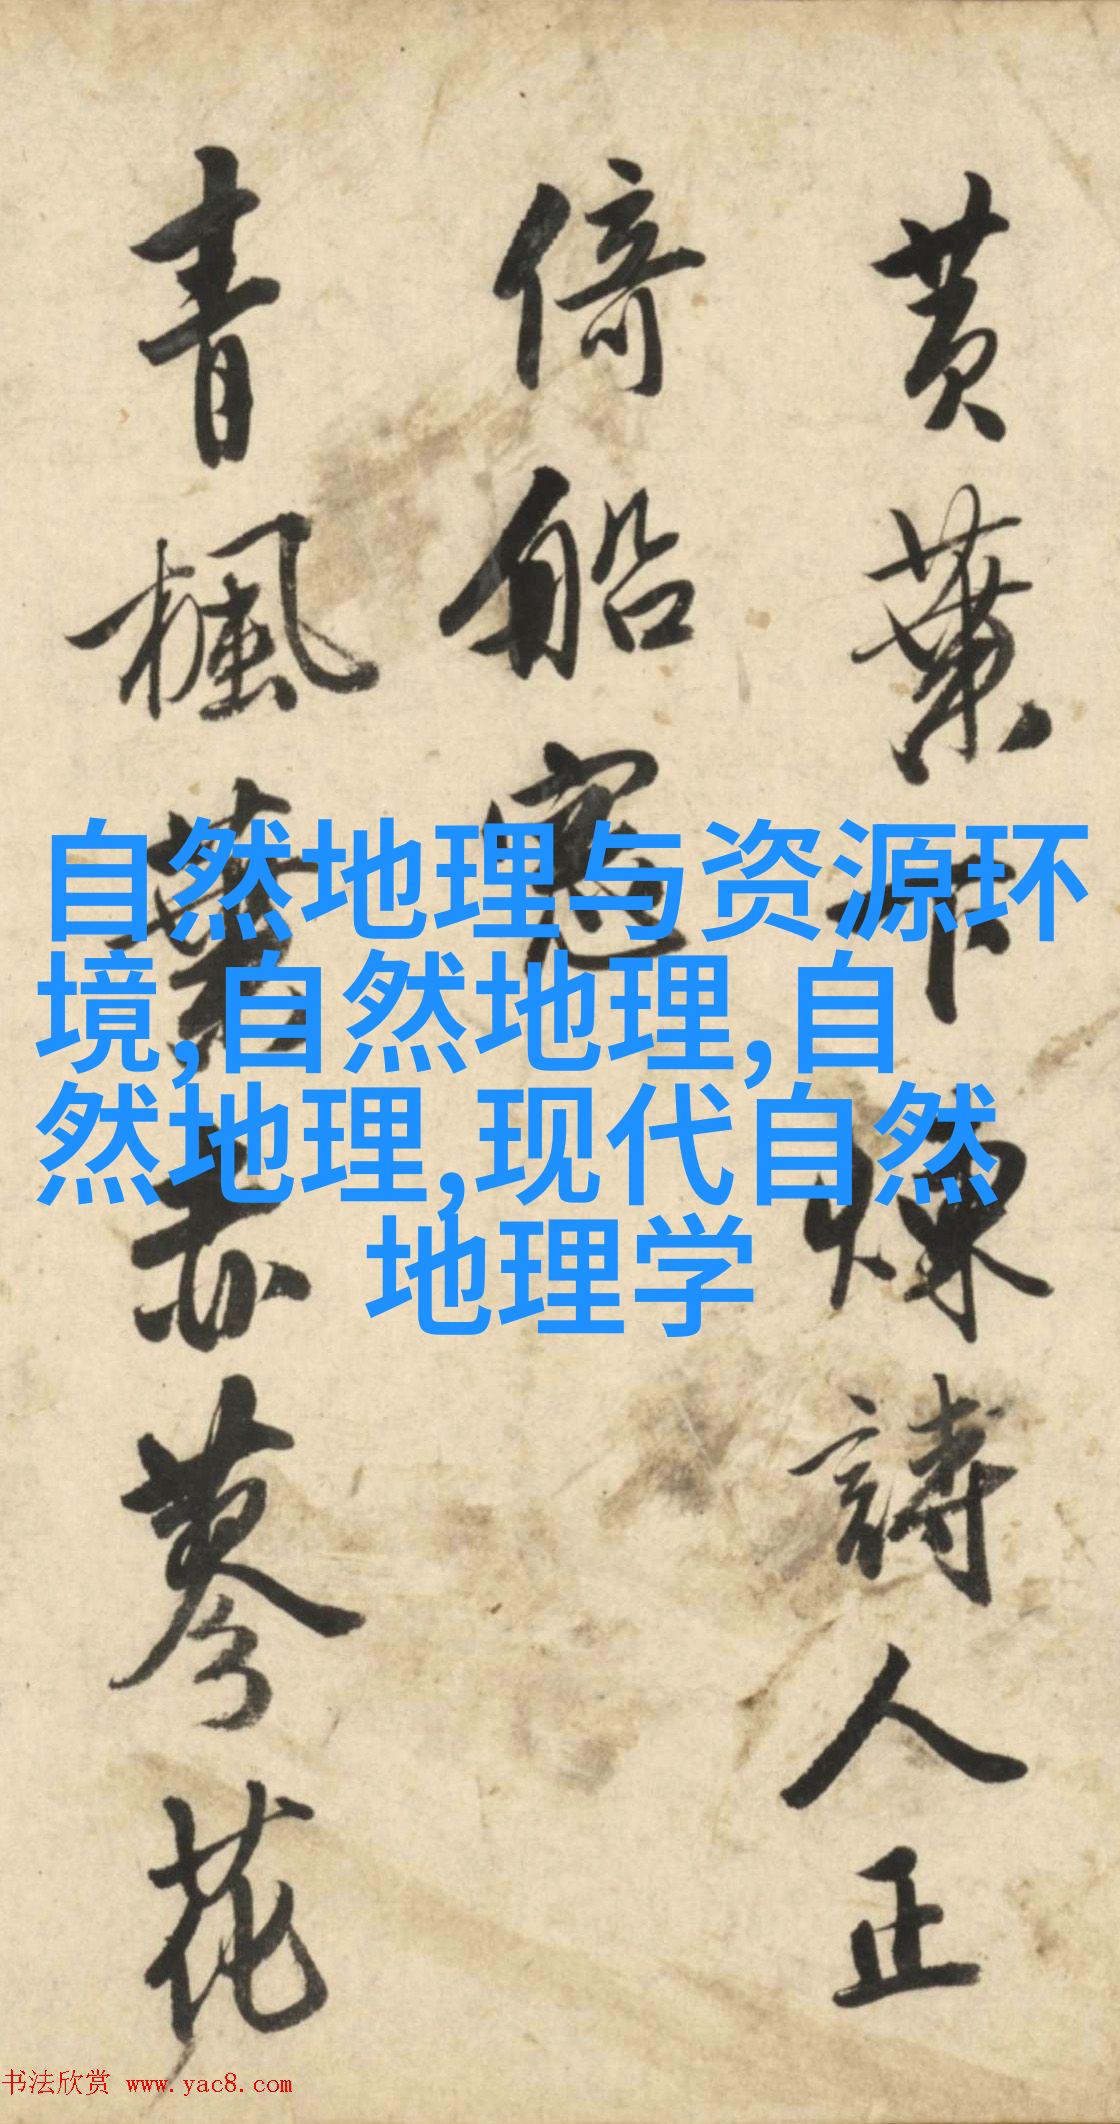 黄葉詩人正
倚船窓
青楓葉赤蓼花
自然地理与资源环
境,自然地理,自
然地理,现代自然
地理学
书法欣赏 www.yac8.com